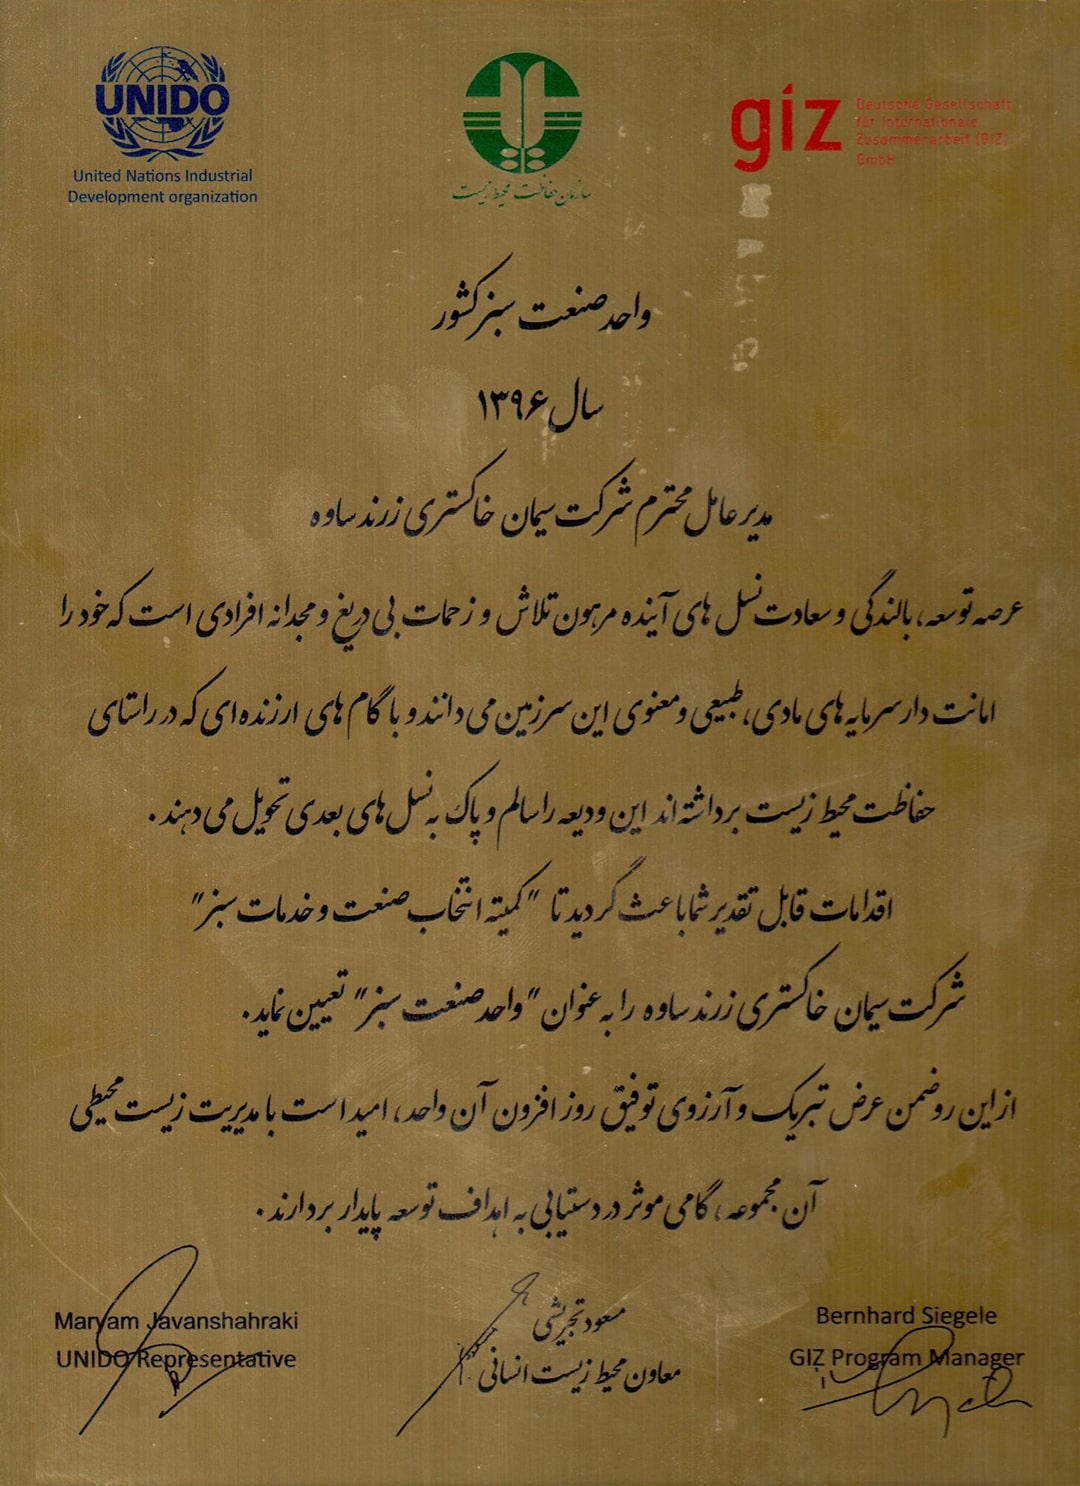 UNIDO
United Nations Industrial
Development organization
سازمان حفاظت محیط زیست
giz
Deutsche Gesellschaft
für Internationale
Zusammenarbeit (GIZ)
GmbH
واحد صنعت سبز کشور
سال ۱۳۹۶
مدیر عامل محترم شرکت سیمان خاکستری زرند ساوه
عرصه توسعه، بالندگی و سعادت نسل های آینده مرهون تلاش و زحمات بی دریغ و مجدانه افرادی است که خود را
امانت دار سرمایه های مادی، طبیعی و معنوی این سرزمین می دانند و با گام های ارزنده ای که در راستای
حفاظت محیط زیست برداشته اند این ودیعه را سالم و پاک به نسل های بعدی تحویل می دهند.
اقدامات قابل تقدیر شما باعث گردید تا "کمیته انتخاب صنعت و خدمات سبز"
شرکت سیمان خاکستری زرند ساوه را به عنوان "واحد صنعت سبز" تعیین نماید.
از این رو ضمن عرض تبریک و آرزوی توفیق روز افزون آن واحد، امید است با مدیریت زیست محیطی
آن مجموعه، گامی موثر در دستیابی به اهداف توسعه پایدار بردارند.
Maryam Javanshahraki
UNIDO Representative
مسعود تجریشی
معاون محیط زیست انسانی
Bernhard Siegele
GIZ Program Manager